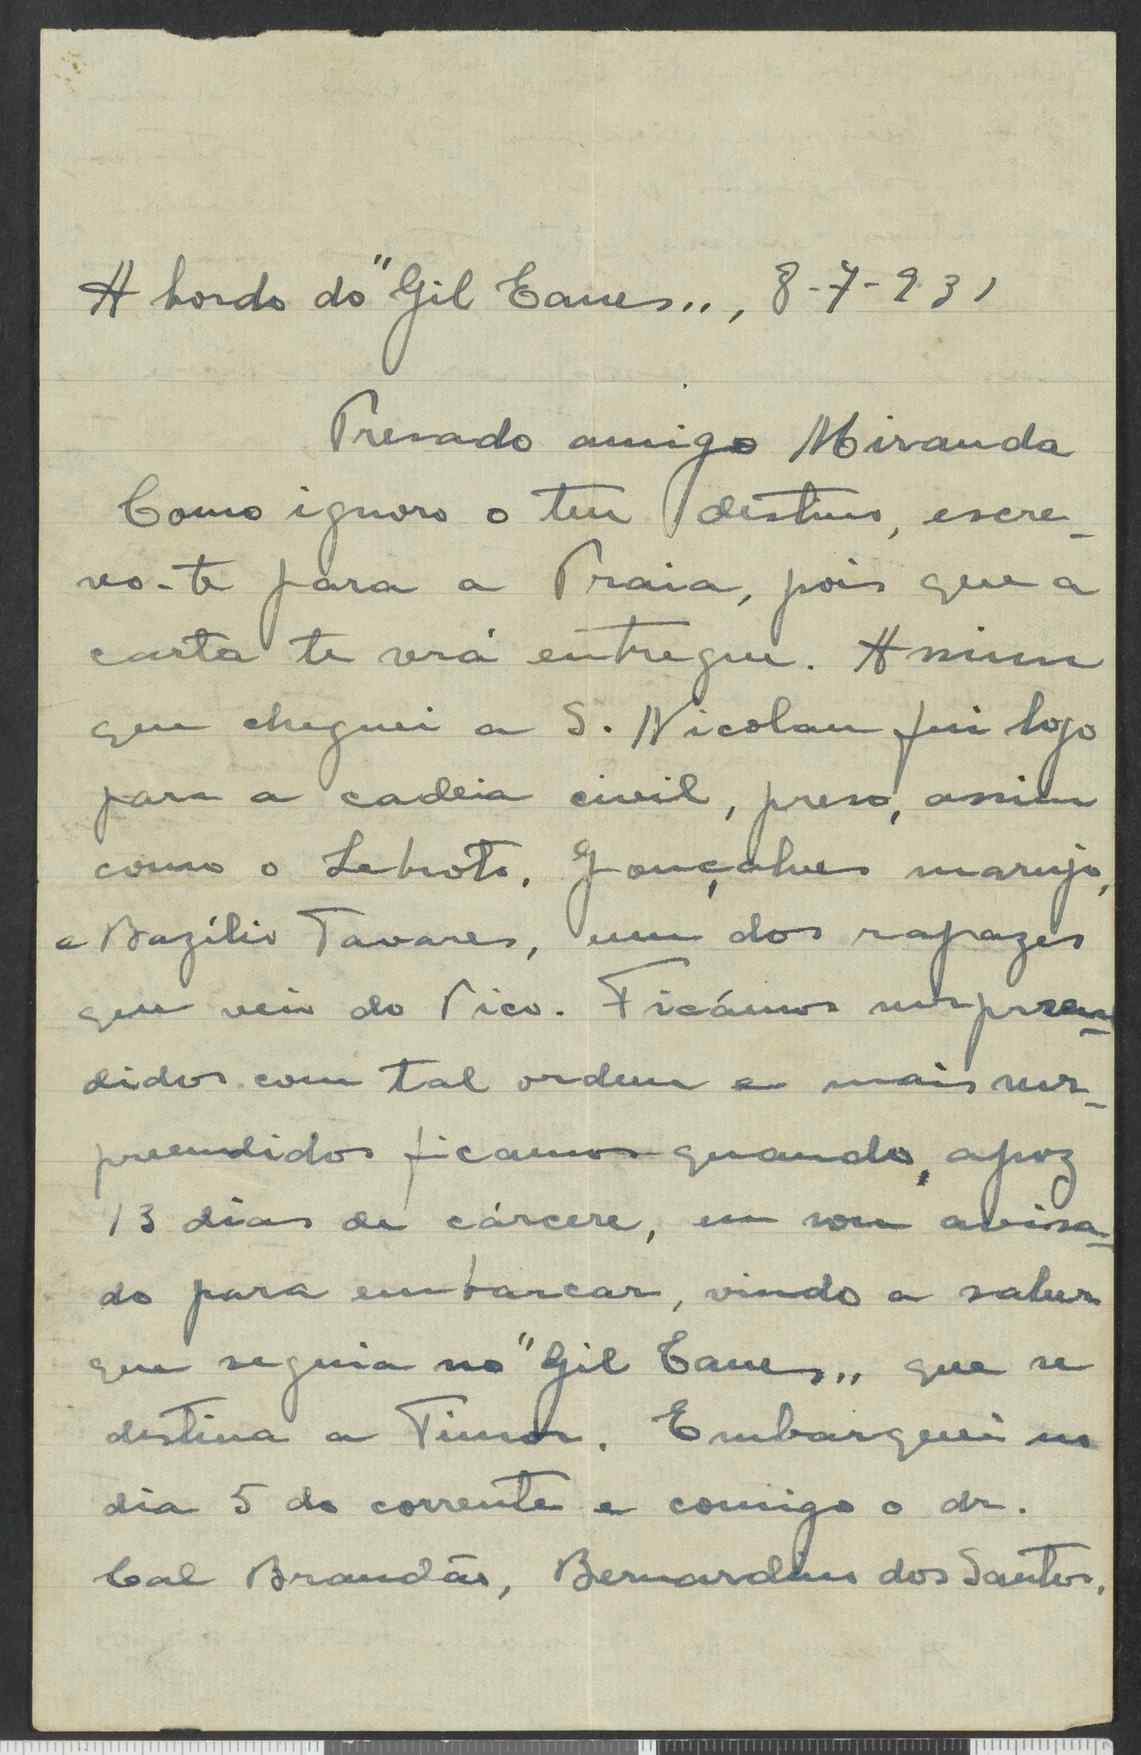 A bordo do "Gil Eanes„, 8-7-931
Presado amigo Miranda
Como ignoro o teu destino, escre-
vo-te para a Praia, pois que a
carta te será entregue. Assim
que cheguei a S. Nicolau fui logo
para a cadeia civil, preso, assim
como o Gonçalves marujo,
e Bazílio Tavares, um dos rapazes
que veio do Pico. Ficámos surpreen-
didos com tal ordem e mais sur-
preendidos ficamos quando, apoz
13 dias de cárcere, eu sou avisa-
do para embarcar, vindo a saber
que seguia no "Gil Eanes„ que se
destina a Timor. Embarquei no
dia 5 do corrente e comigo o dr.
Cal Brandão, Bernardino dos Santos,